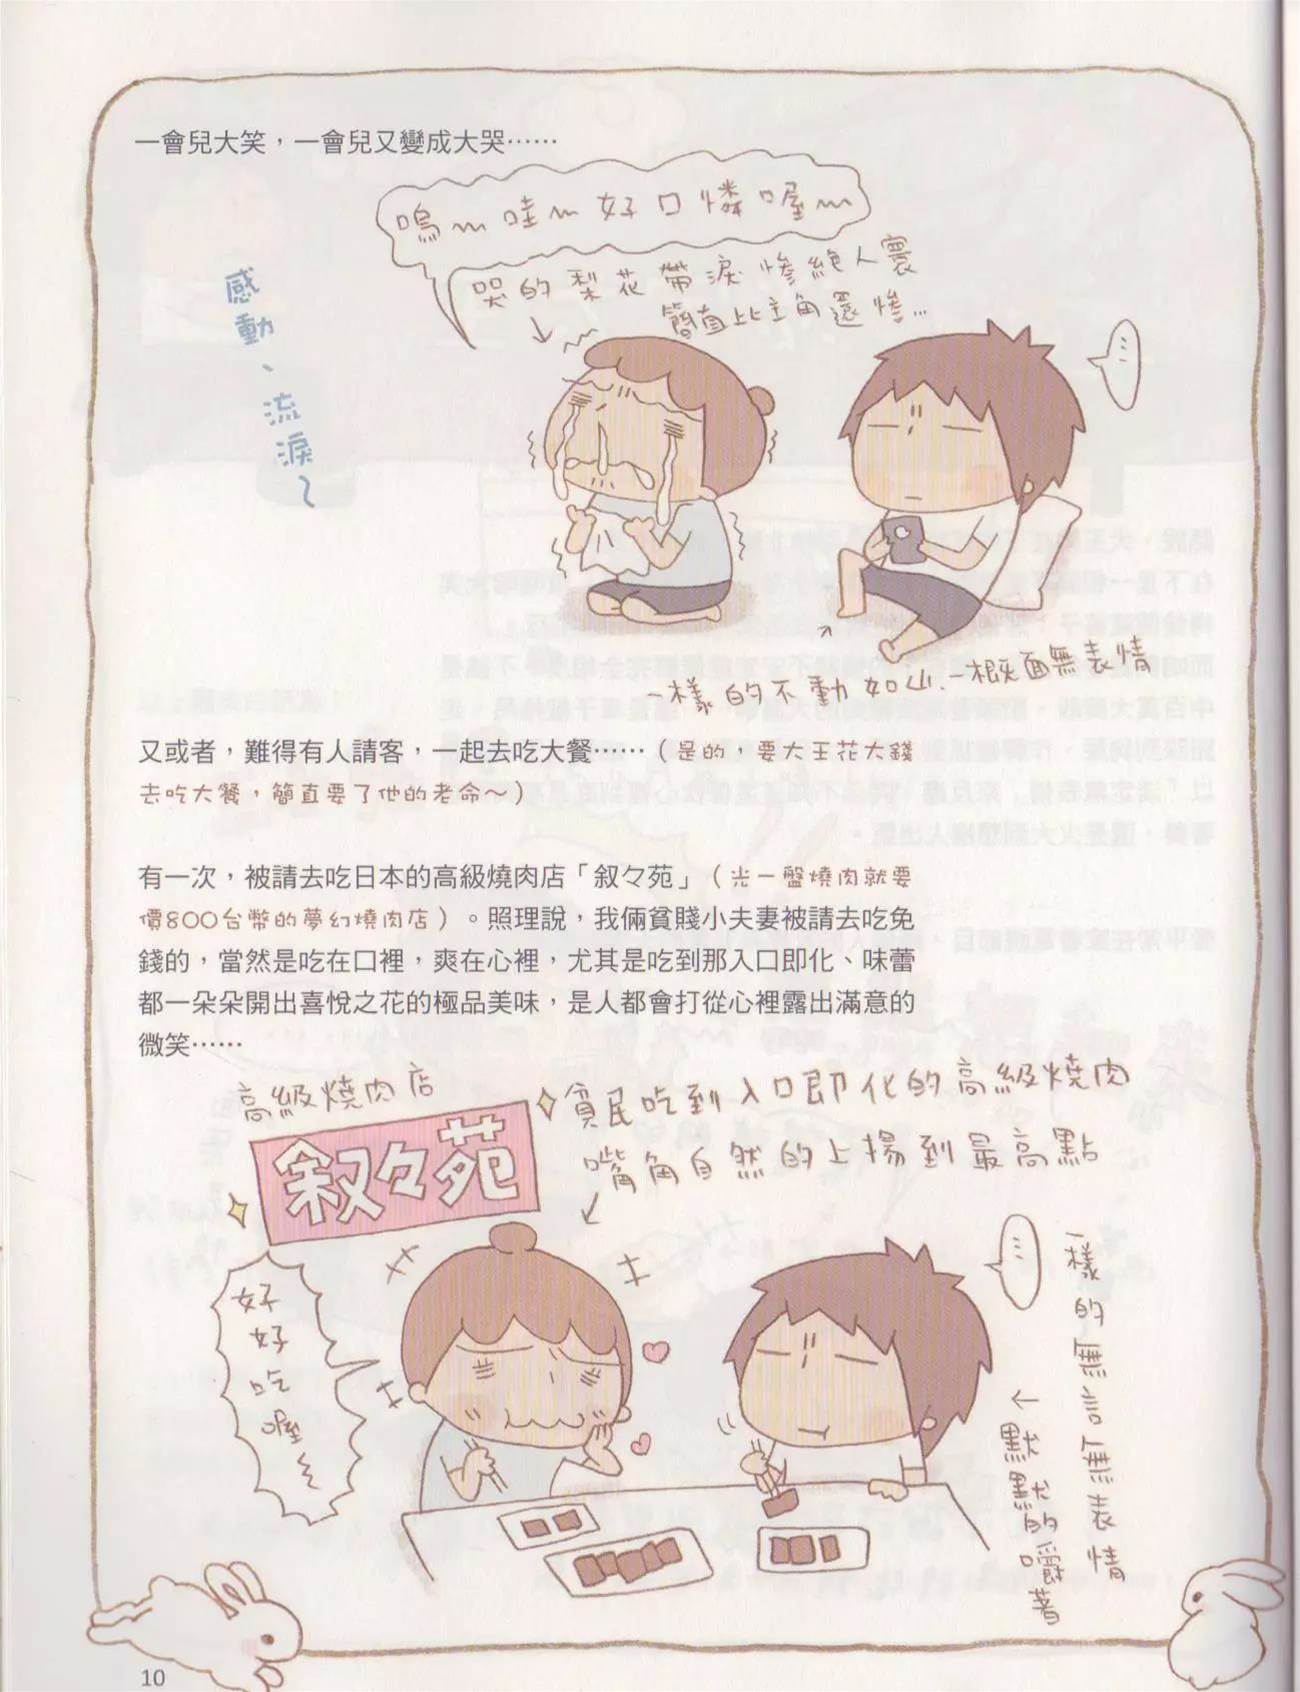 一會兒大笑，一會兒又變成大哭⋯⋯
嗚~哇~好口憐喔~
哭的梨花帶淚慘絕人寰
簡直比主角還慘…
感動、流淚~
⋯⋯
一樣的不動如山.一概面無表情
又或者，難得有人請客，一起去吃大餐⋯⋯（是的，要大王花大錢
去吃大餐，簡直要了他的老命～）
有一次，被請去吃日本的高級燒肉店「叙々苑」（光一盤燒肉就要
價800台幣的夢幻燒肉店）。照理說，我倆貧賤小夫妻被請去吃免
錢的，當然是吃在口裡，爽在心裡，尤其是吃到那入口即化、味蕾
都一朵朵開出喜悅之花的極品美味，是人都會打從心裡露出滿意的
微笑⋯⋯
高級燒肉店
叙々苑
貧民吃到入口即化的高級燒肉
嘴角自然的上揚到最高點
好好吃喔~
⋯⋯
一樣的無言無表情
←默默的嚼著
10